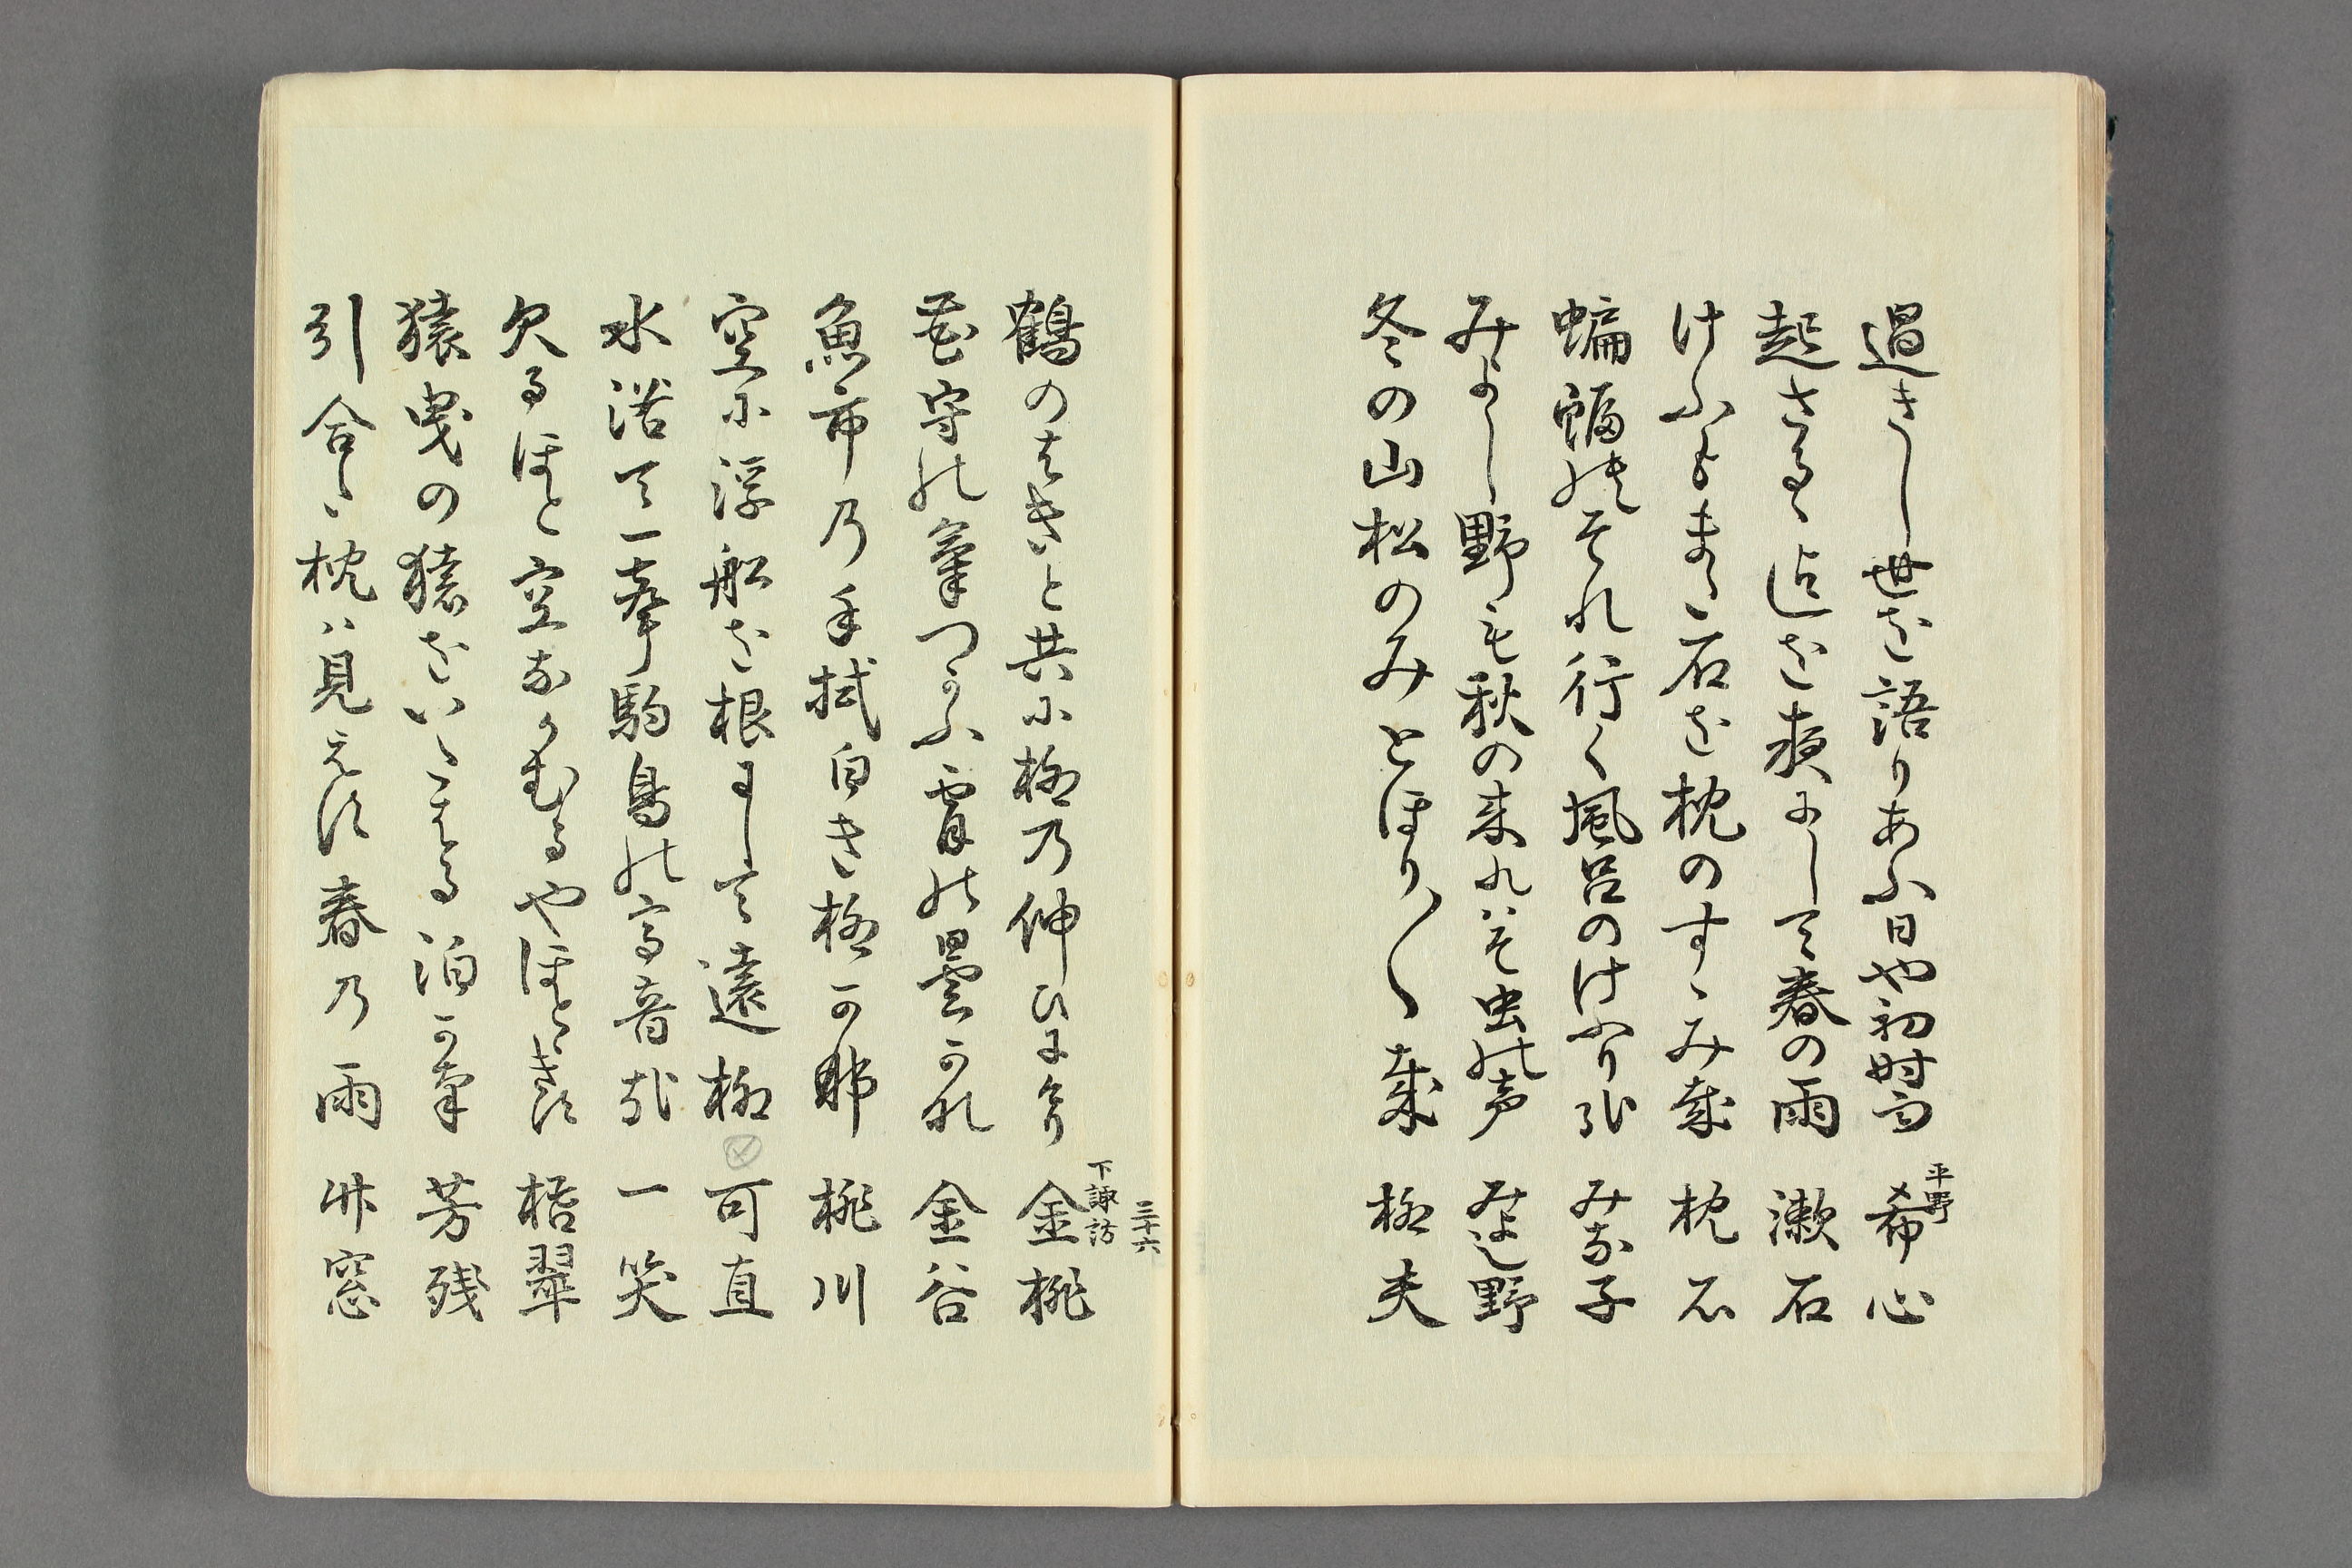 平野
過きし世を語りあふ日や初時雨 希心
起さるゝ迄を夜にして春の雨 漱石
けふもまた石を枕のすゝみ哉 枕石
蝙蝠のそれ行く風呂のけふり哉 みな子
みよし野も秋の来れはそ虫の声 みよし野
冬の山松のみとほり〱哉 柳夫
三十六
下諏訪
鶴のはきと共に柳の伸ひにけり 金桃
花守の気つかふ宵の曇かな 金谷
魚市の手拭白き柳かな 桃川
空に浮船を根にして遠柳 可直
水浴て一声駒鳥の高音哉 一笑
欠るほと空なかむるやほとゝきす 梧翠
猿曳の猿をいたはる泊かな 芳残
引合ふ枕は見えす春の雨 竹窓